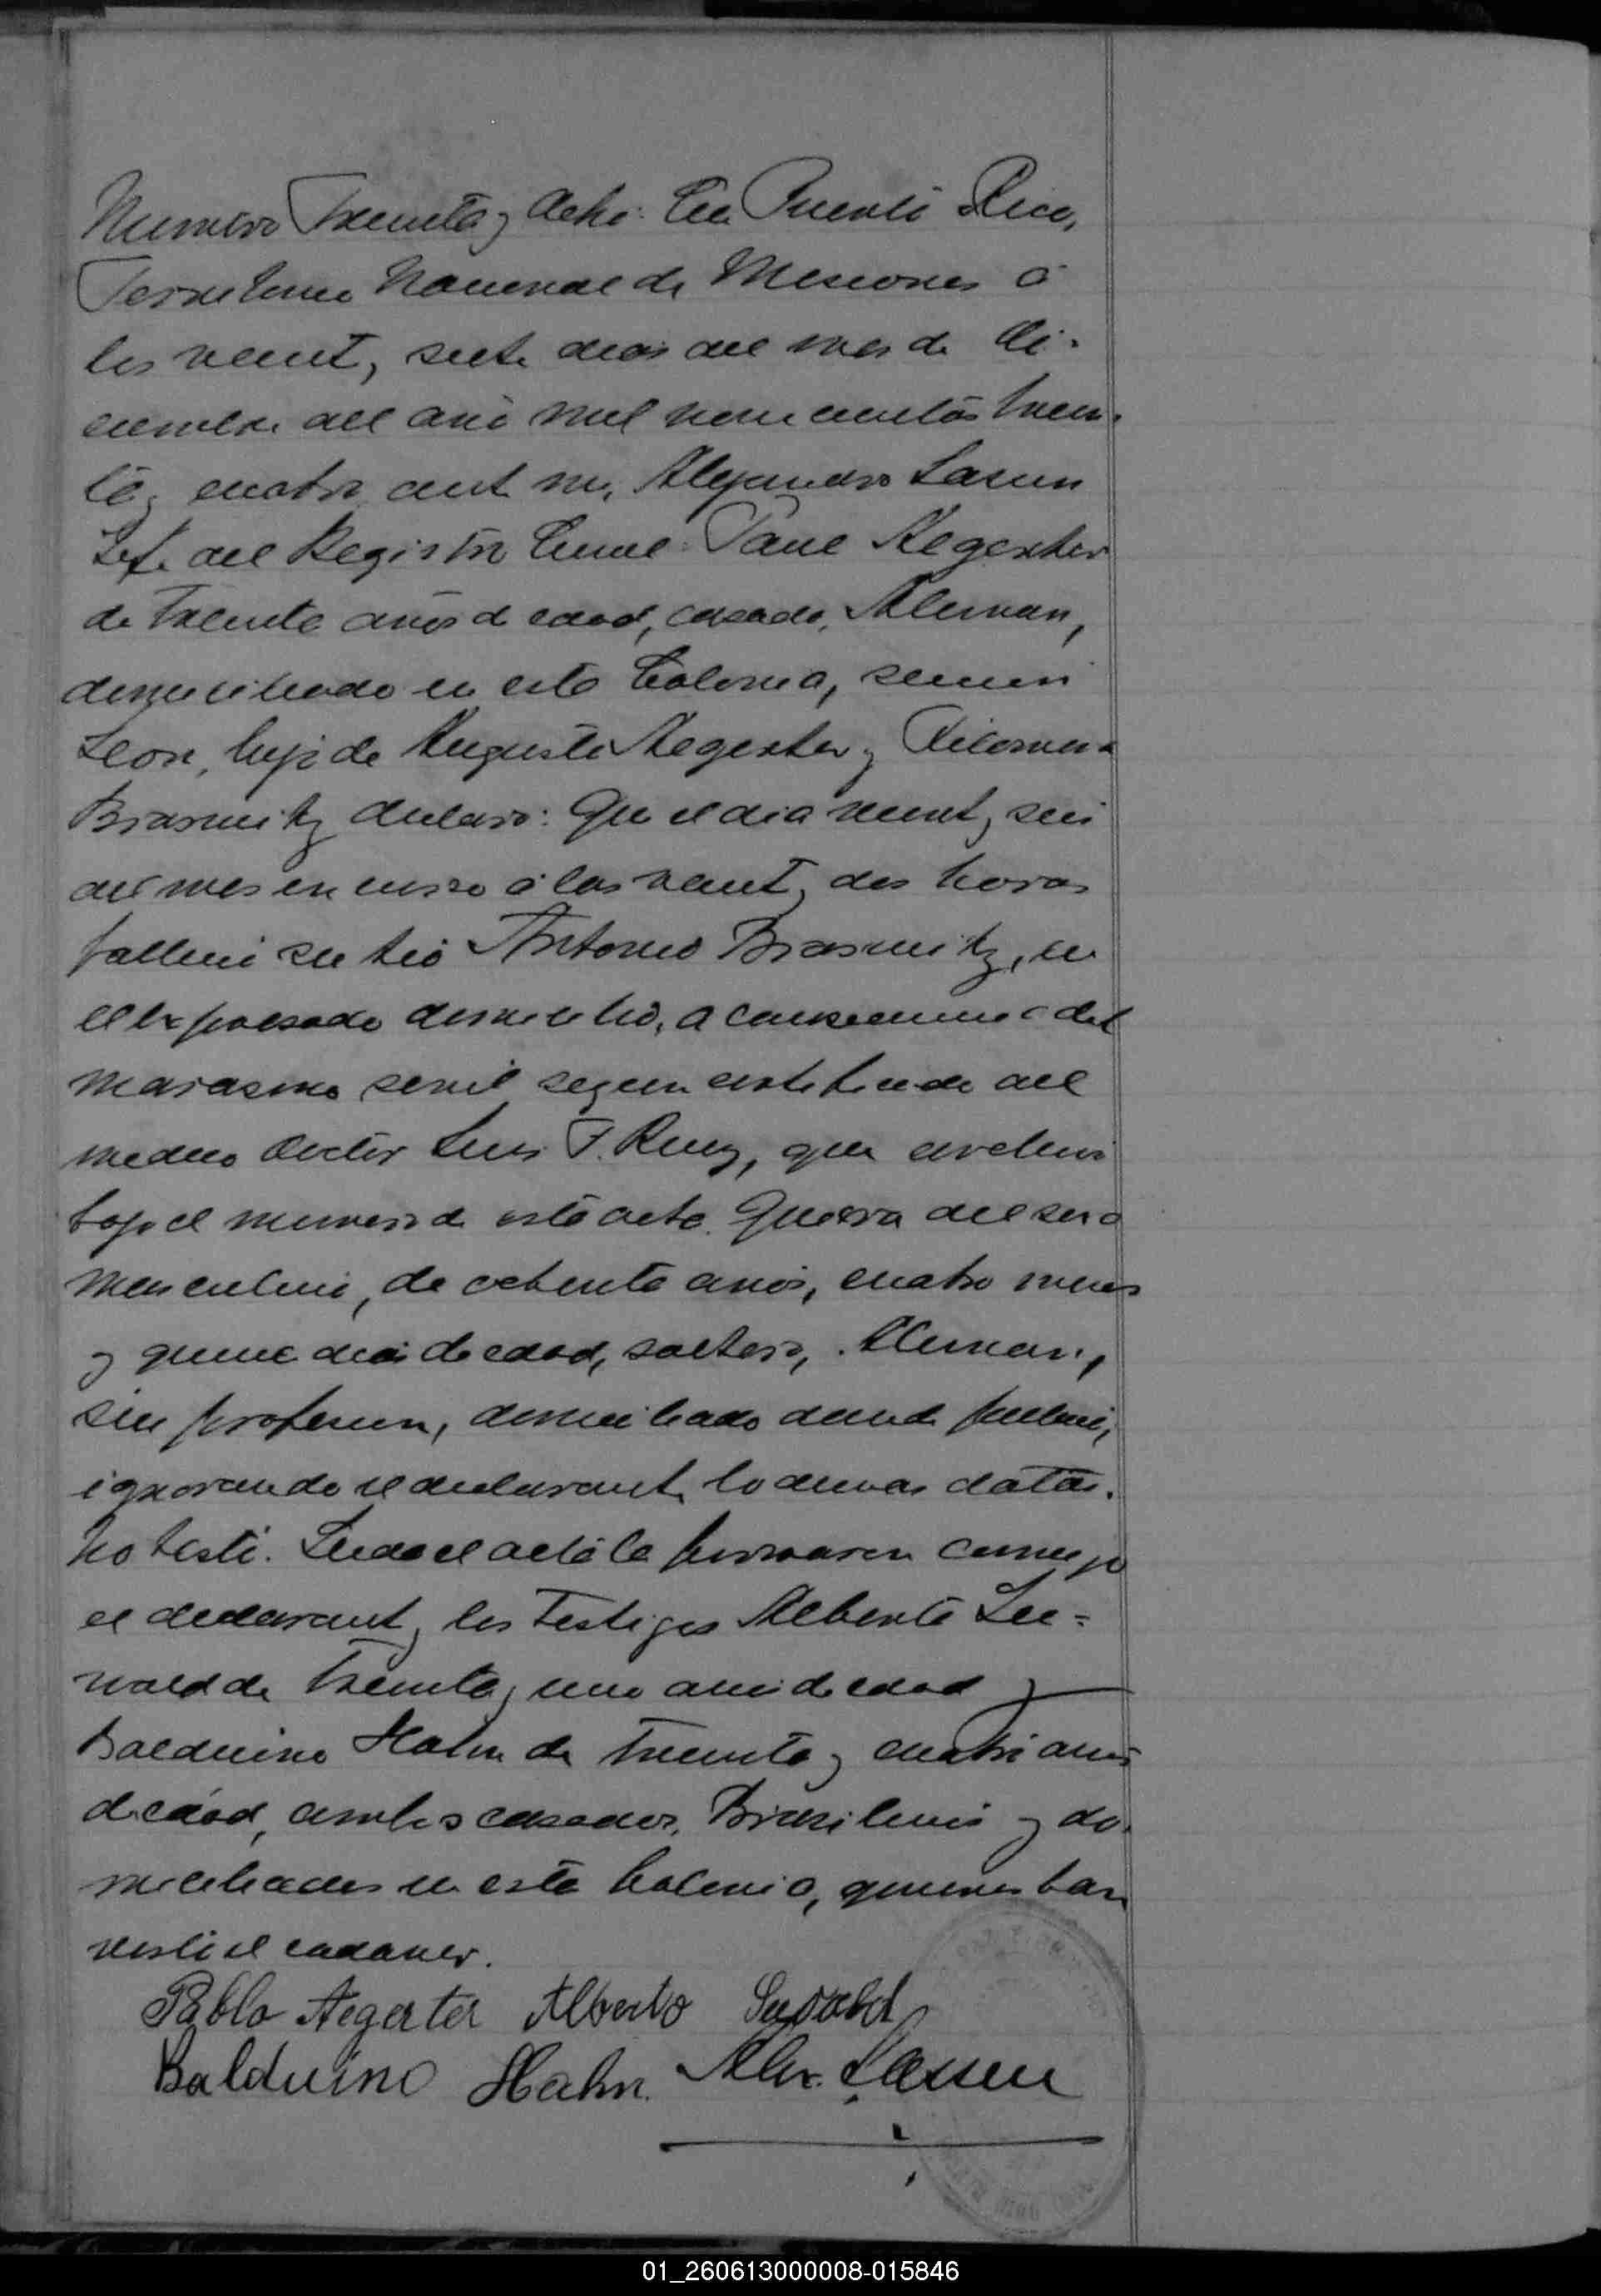 Numero Treinta y Ocho: En Puerto Rico,
Territorio Nacional de Misiones á
los veinte y siete dias del mes de Di-
ciembre del año mil novecientos trein-
ta y cuatro ante mi, Alejandro Lassen
Jefe del Registro Civil: Paul Aegerter
de treinta años de edad, casado, Aleman,
domiciliado en esta Colonia, seccion
Leon, hijo de Augusto Aegerter y Filomena
Brasnitz declaro: Que el dia veinte y seis
del mes en curso á las veinte y dos horas
falleció su tio Antonio Brasnitz, en
el expresado domicilio, a consecuencia del
marasmo senil segun certificado del
medico Doctor Luis F. Ruiz, que archivo
bajo el numero de esta acta. Que era del sexo
masculino, de ochenta años, cuatro meses
y quince dias de edad, soltero, Aleman,
sin profesion, domiciliado donde falleció,
ignorando el declarante lo demas datos.
No testó. Leida el acta la firmaron conmigo
el declarante y los testigos Alberto Su-
wald de treinta y uno años de edad y
Balduino Hahn de treinta y cuatro años
de edad, ambos casados, Brasileños y do-
miciliados en esta Colonia, quienes han
visto el cadaver.
Pablo Aegerter Alberto Suwald
Balduino Hahn. Alex. Lassen
01_260613000008-015846